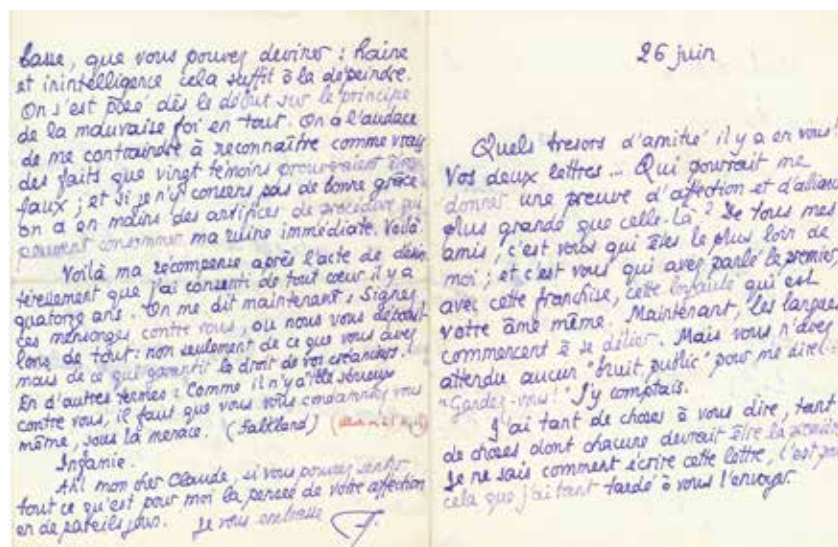 basse, que vous pouvez deviner : haine
et inintelligence cela suffit à la dépeindre.
On s'est posé dès le début sur le principe
de la mauvaise foi en tout. On a l'audace
de me contraindre à reconnaître comme vrais
des faits que vingt témoins prouvaient être
faux ; et si je n'y consens pas de bonne grâce
on a en mains des artifices de procédure qui
peuvent consommer ma ruine immédiate. Voilà.
Voilà ma récompense après l'acte de désin
téressement que j'ai consenti de tout cœur il y a
quatorze ans. On me dit maintenant : Signez
ces mensonges contre vous, ou nous vous dépouil-
lons de tout : non seulement de ce que vous avez
mais de ce qui garantit le droit de vos créanciers.
En d'autres termes : Comme il n'y a rien
contre vous, il faut que vous vous condamniez vous
même, sous la menace.
Infamie.
Ah ! mon cher Claude, si vous pouvez sentir
tout ce qu'est pour moi la pensée de votre affection
en de pareils jours. Je vous embrasse
26 juin
Quels tresors d'amitié il y a en vous !
Vos deux lettres... Qui pourrait me
donner une preuve d'affection et d'alliance
plus grande que celle-là ? De tous mes
amis, c'est vous qui êtes le plus loin de
moi ; et c'est vous qui avez parlé le premier,
avec cette franchise, cette loyauté qui est
votre âme même. Maintenant, les langues
commencent à se délier. Mais vous n'avez
attendu aucun "bruit public" pour me dire :
"Gardez-vous !" J'y comptais.
J'ai tant de choses à vous dire, tant
de choses dont chacune devrait être la première
Je ne sais comment écrire cette lettre, c'est pour
cela que j'ai tant tardé à vous l'envoyer.